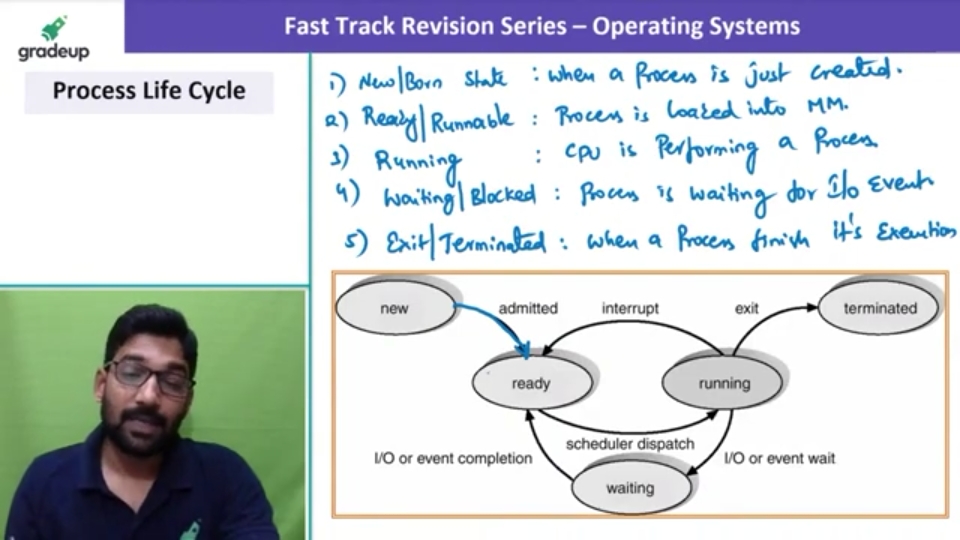 Fast Track Revision Series – Operating Systems
gradeup
Process Life Cycle
1) New/Born State : when a Process is just created.
2) Ready/Runnable : Process is loaded into MM.
3) Running : CPU is Performing a Process
4) Waiting/Blocked : Process is waiting for I/O Event
5) Exit/Terminated : when a Process finish it's Execution
new
admitted
interrupt
exit
terminated
ready
running
scheduler dispatch
I/O or event completion
I/O or event wait
waiting